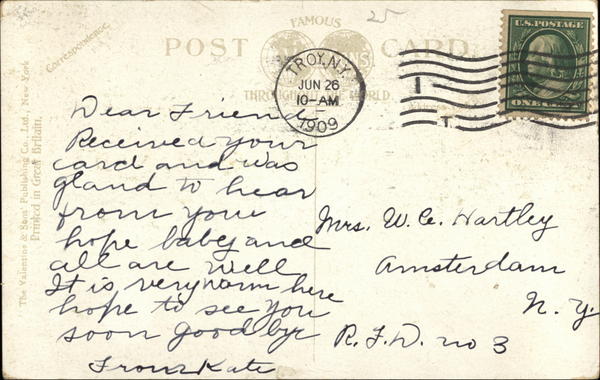 Correspondence.
FAMOUS
POST CARD
THROUGHOUT THE WORLD
25
TROY, N.Y.
JUN 26
10-AM
1909
U.S. POSTAGE
ONE CENT
The Valentine & Sons' Publishing Co., Ltd., New York
Printed in Great Britain.
Dear Friend
Received your
card and was
gland to hear
from your
hope babey and
all are well
It is very warm here
hope to see you
soon good bye
From Kate
Mrs. W. C. Hartley
Amsterdam
N. Y.
R. F. D. no 3